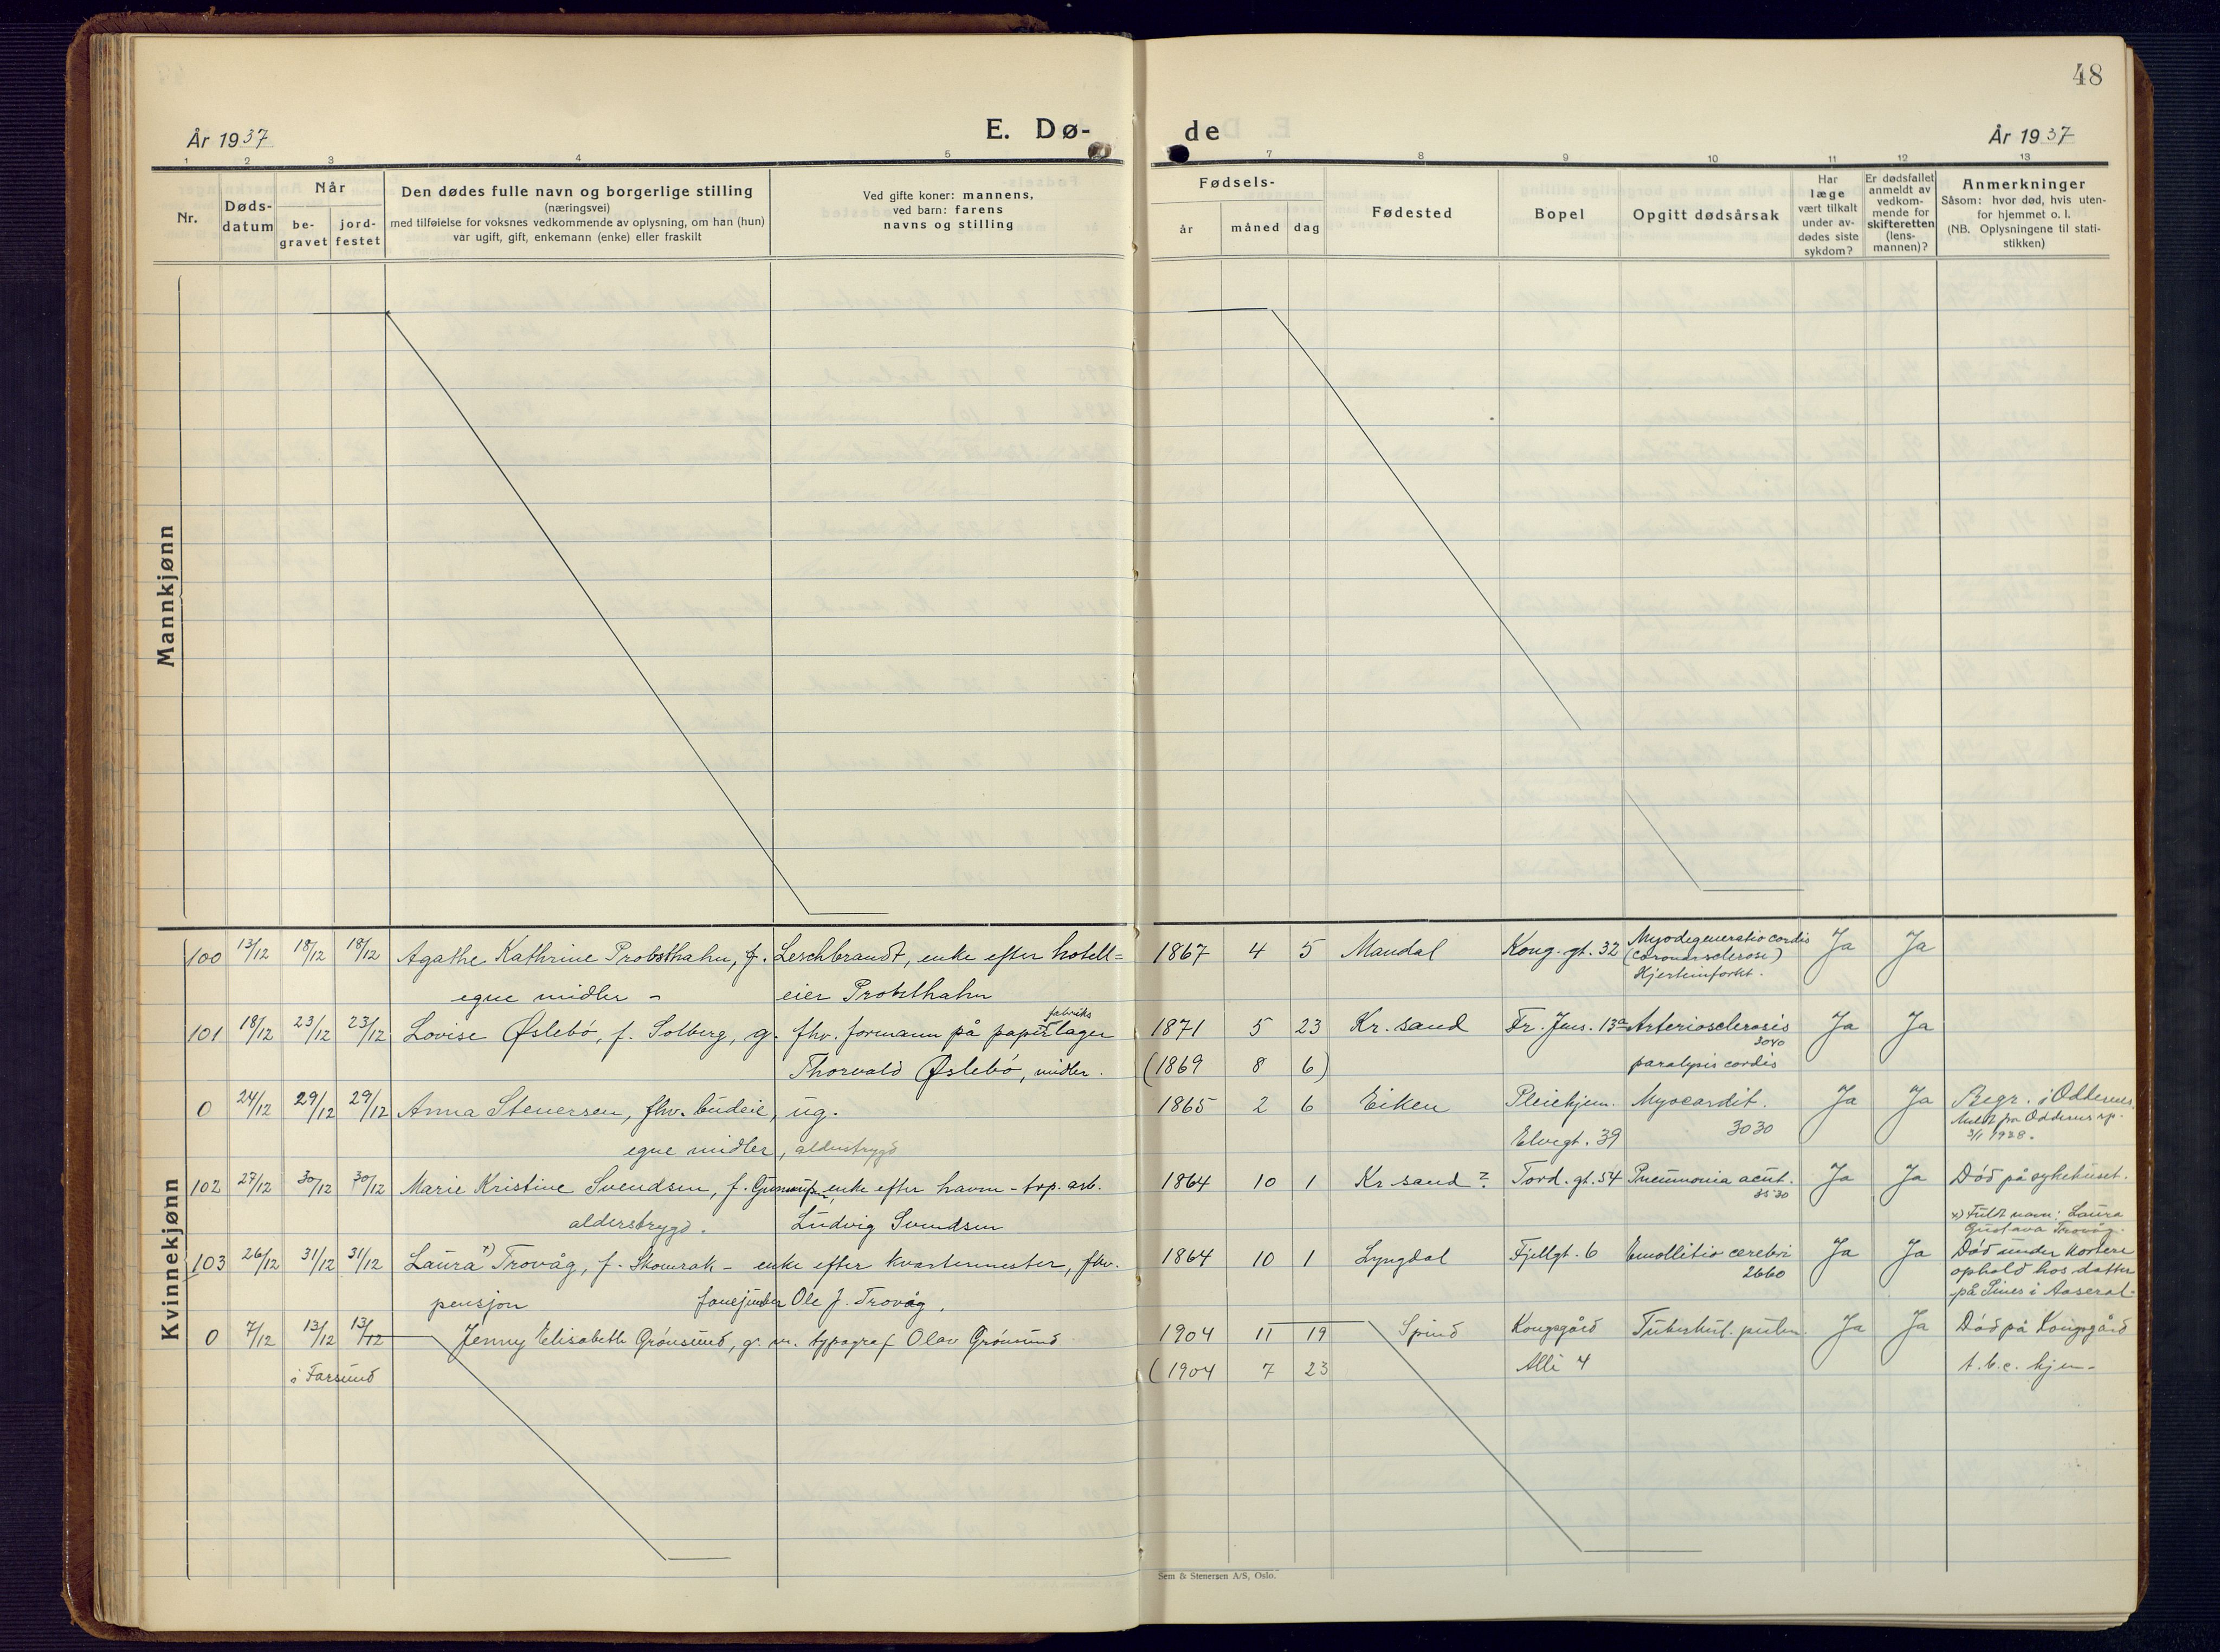 48
År 1937
E. Dø-
de
År 1937
1 2 3 4 5 7 8 9 10 11 12 13
Nr.
Døds-
datum
Når
be-
gravet
jord-
festet
Den dødes fulle navn og borgerlige stilling
(næringsvei)
med tilføielse for voksnes vedkommende av oplysning, om han (hun)
var ugift, gift, enkemann (enke) eller fraskilt
Ved gifte koner: mannens,
ved barn: farens
navns og stilling
Fødsels-
år måned dag
Fødested
Bopel
Opgitt dødsårsak
Har
læge
vært tilkalt
under av-
dødes siste
sykdom?
Er dødsfallet
anmeldt av
vedkom-
mende for
skifteretten
(lens-
mannen)?
Anmerkninger
Såsom: hvor død, hvis uten-
for hjemmet o. l.
(NB. Oplysningene til stati-
stikken)
Mannkjønn
Kvinnekjønn
100 13/12 18/12 18/12 Agathe Kathrine Probsthahn, f. Leschbrandt, enke efter hotell=
egne midler - eier Probsthahn
1867 4 5 Mandal Kong. gt. 32 Myodegeneratio cordis Ja Ja
(coronarsclerose)
Hjerteinfarkt.
101 18/12 23/12 23/12 Lovise Øslebö, f. Solberg, g. fhv. formann på papirlager
fabriks
Thorvald Øslebö, midler.
1871 5 23 Kr. sand Fr. Jens. 13a Arteriosclerosis Ja Ja
3040
(1869 8 6) paralysis cordis
0 24/12 29/12 29/12 Anna Stenersen, fhv. budeie, ug.
egne midler, alderstrygd
1865 2 6 Eiken Pleiehjem. Myocardit. Ja Ja Begr. i Oddernes.
Elvegt. 39 3030
Meldt fra Oddernes sp.
3/1 1938.
102 27/12 30/12 30/12 Marie Kristine Svendsen, f. enke efter havn-trp. arb.
alderstrygd. Ludvig Svendsen
1864 10 1 Kr. sand? Tord. gt. 54 Pneumonia acut. Ja Ja Död på sykehuset.
x) Fullt navn: Laura
Gustava Trovåg.
103 26/12 31/12 31/12 Laura x) Trovåg, f. Skomrak - enke efter kvartermester, fhv.
pensjon fanejunker Ole J. Trovåg.
1864 10 1 Lyngdal Fjellgt. 6 Emollitio cerebri Ja Ja Död under kortere
2660
ophold hos datter
på Sines i Aaseral.
0 7/12 13/12 13/12 Jenny Elisabeth Grönsund, g. m. typograf Olav Grönsund
i Farsund
1904 11 19 Spind Kongsgård Tuberkul. pulm. Ja Ja Död på Kongsgård
(1904 7 23 Allé 4 t.b.c. hjem-
Sem & Stenersen A/S, Oslo.